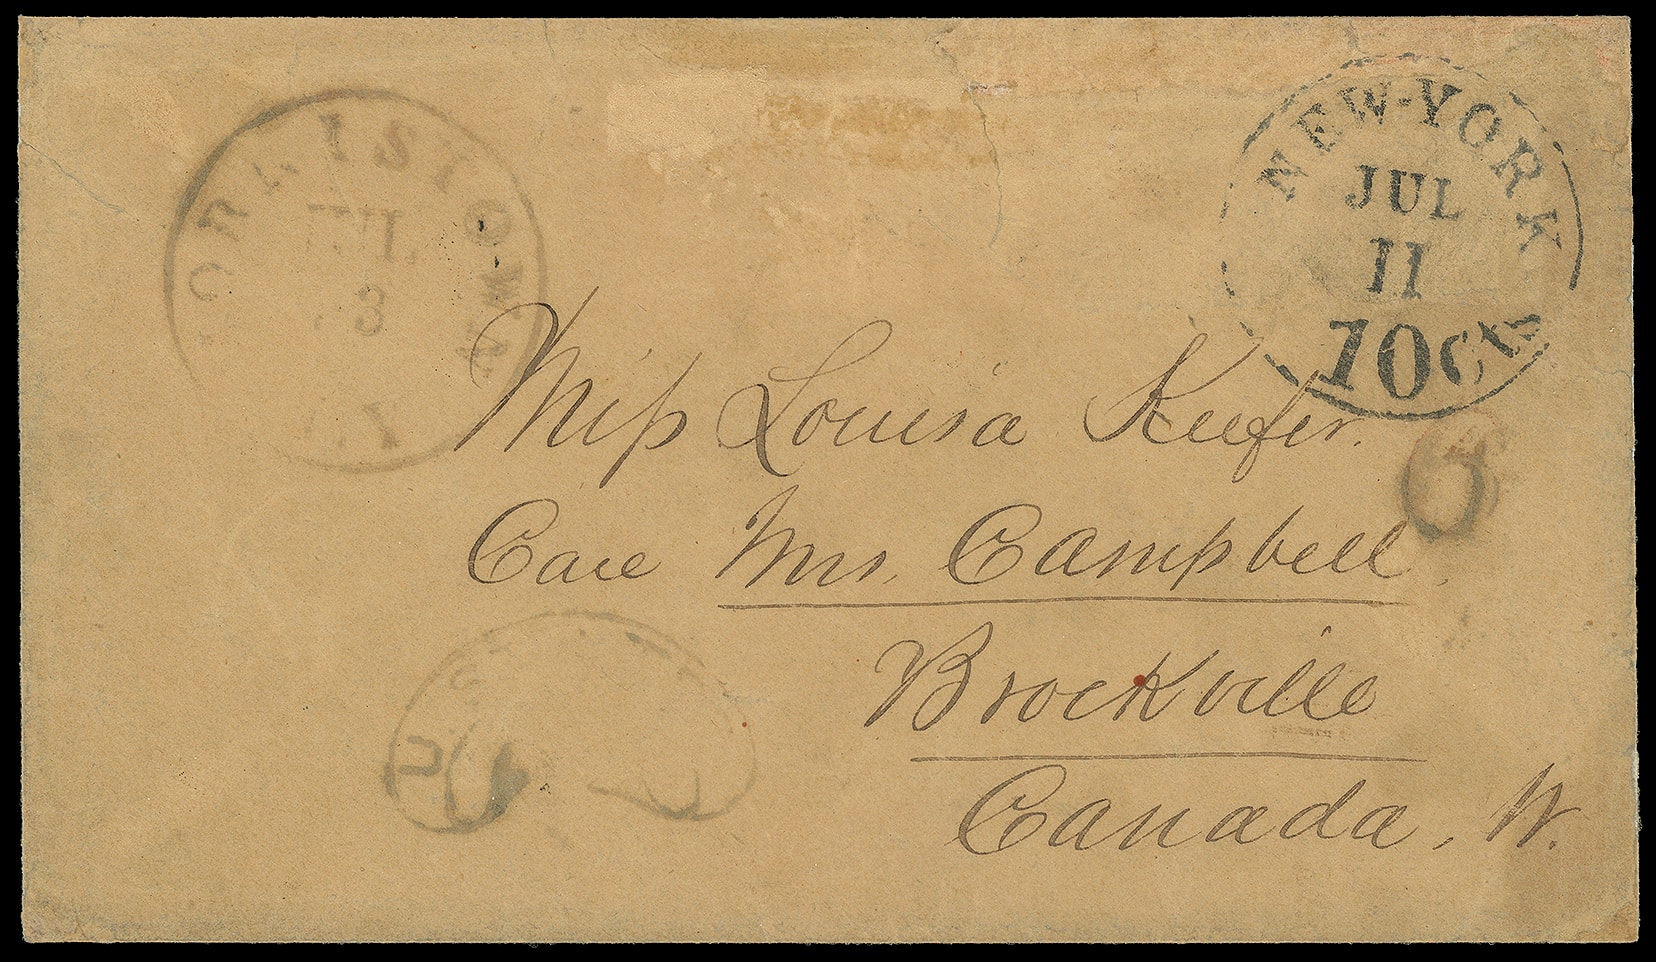 NEW-YORK
JUL
11
10 cts
Miss Louisa Keefer.
Care Mrs. Campbell.
Brockville
Canada, W.